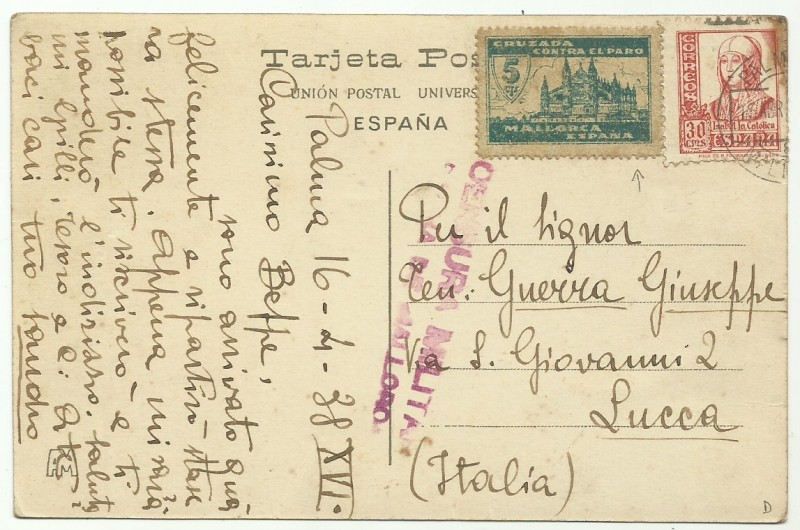 Tarjeta Pos
UNIÓN POSTAL UNIVERS
ESPAÑA
CRUZADA
CONTRA EL PARO
5
MALLORCA
ESPAÑA
CORREOS
30
CTS
Isabel la Católica
ESPAÑA
CENSURA MILITA
Palma 16-4-38 XVI.
Carissimo Beppe,
sono arrivato qua
felicemente e ripartirò stase
ra stessa. Appena mi sarà
possibile ti riscriverò e ti
manderò l'indirizzo. Saluta
mi
baci cari tuo Sandro
Per il Signor
Ten. Guerra Giuseppe
Via S. Giovanni 2
Lucca
(Italia)
D